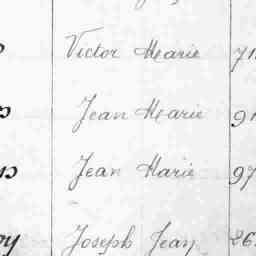 Victor Marie 71
Jean Marie 91
Jean Marie 97
Joseph Jean 26